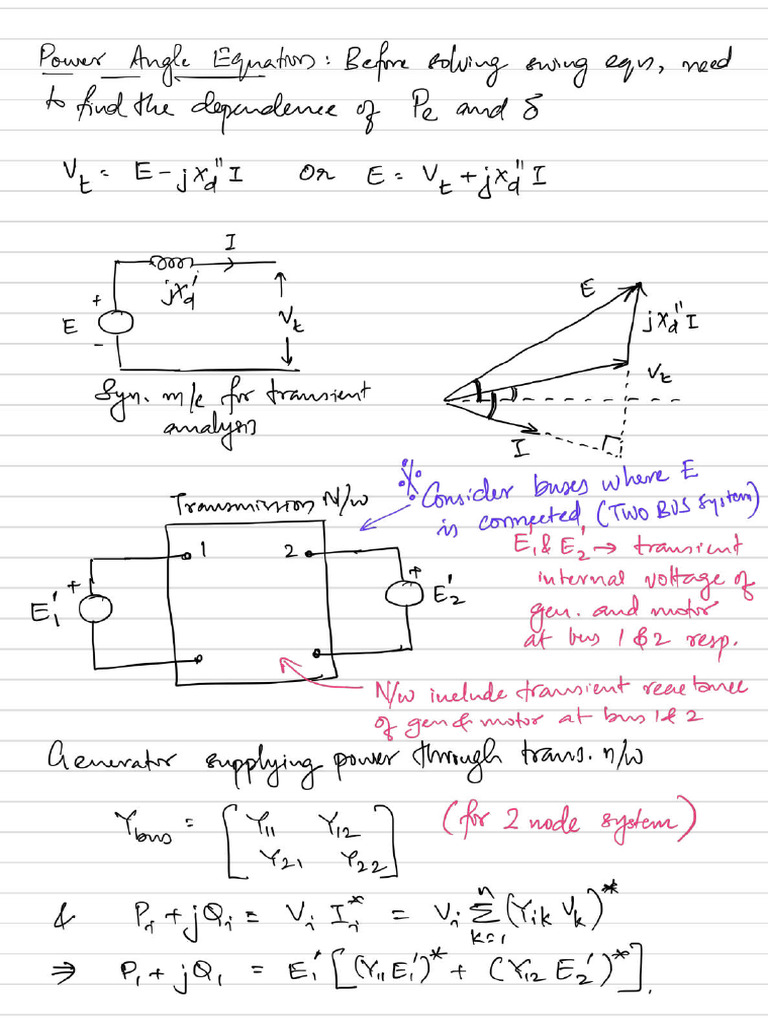 Power Angle Equation: Before solving swing eqn, need
to find the dependence of Pe and δ
V_t = E - jX_d''I or E = V_t + jX_d''I
I
jX_d'
+
E
-
V_t
Syn. m/c for transient
analysis
E
jX_d''I
V_t
I
Transmission N/w
Consider buses where E
is connected (TWO BUS System)
E_1' & E_2' → transient
internal voltage of
gen. and motor
at bus 1 & 2 resp.
1
2
+
E_1'
+
E_2'
N/w include transient reactance
of gen & motor at bus 1 & 2
Generator supplying power through trans. n/w
Y_bus = [Y_11 Y_12
Y_21 Y_22]
(for 2 node system)
& P_i + jQ_i = V_i I_i^* = V_i Σ_{k=1}^{n} (Y_ik V_k)^*
⇒ P_1 + jQ_1 = E_1' [(Y_11 E_1')^* + (Y_12 E_2')^*].